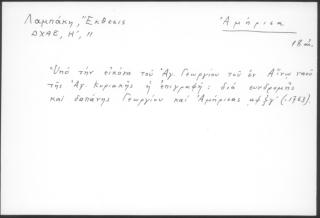 Λαμπάκη, "Έκθεσις
ΔΧΑΕ, Η', 11
Ἀμήρισα
18 αἰ.
Ὑπό τήν εἰκόνα τοῦ Ἁγ. Γεωργίου τοῦ ἐν Αἴνῳ ναοῦ
τῆς Ἁγ. Κυριακῆς ἡ ἐπιγραφή: διά συνδρομῆς
καί δαπάνης Γεωργίου καί Ἀμήρισας αψξγ' (=1763).